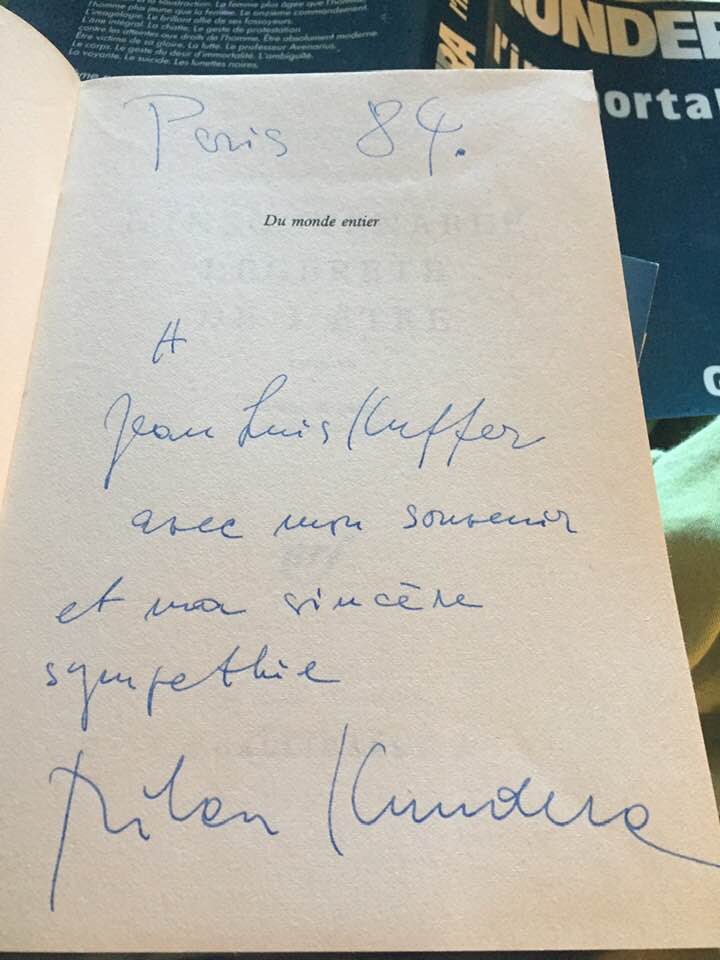 soustraction. La femme plus âgée que l'homme
l'homme plus jeune que la femme. Le onzième commandement.
L'imagologie. Le brillant allié de ses fossoyeurs.
L'âne intégral. La chatte. Le geste de protestation
contre les atteintes aux droits de l'homme. Être absolument moderne
Être victime de sa gloire. La lutte. Le professeur Avenarius.
Le corps. Le geste du désir d'immortalité. L'ambiguïté.
La voyante. Le suicide. Les lunettes noires.
UNDER
l'i
mortal
Paris 84.
Du monde entier
A
Jean Luis Kuffer
avec mon souvenir
et ma sincère
sympathie
Milan Kundera